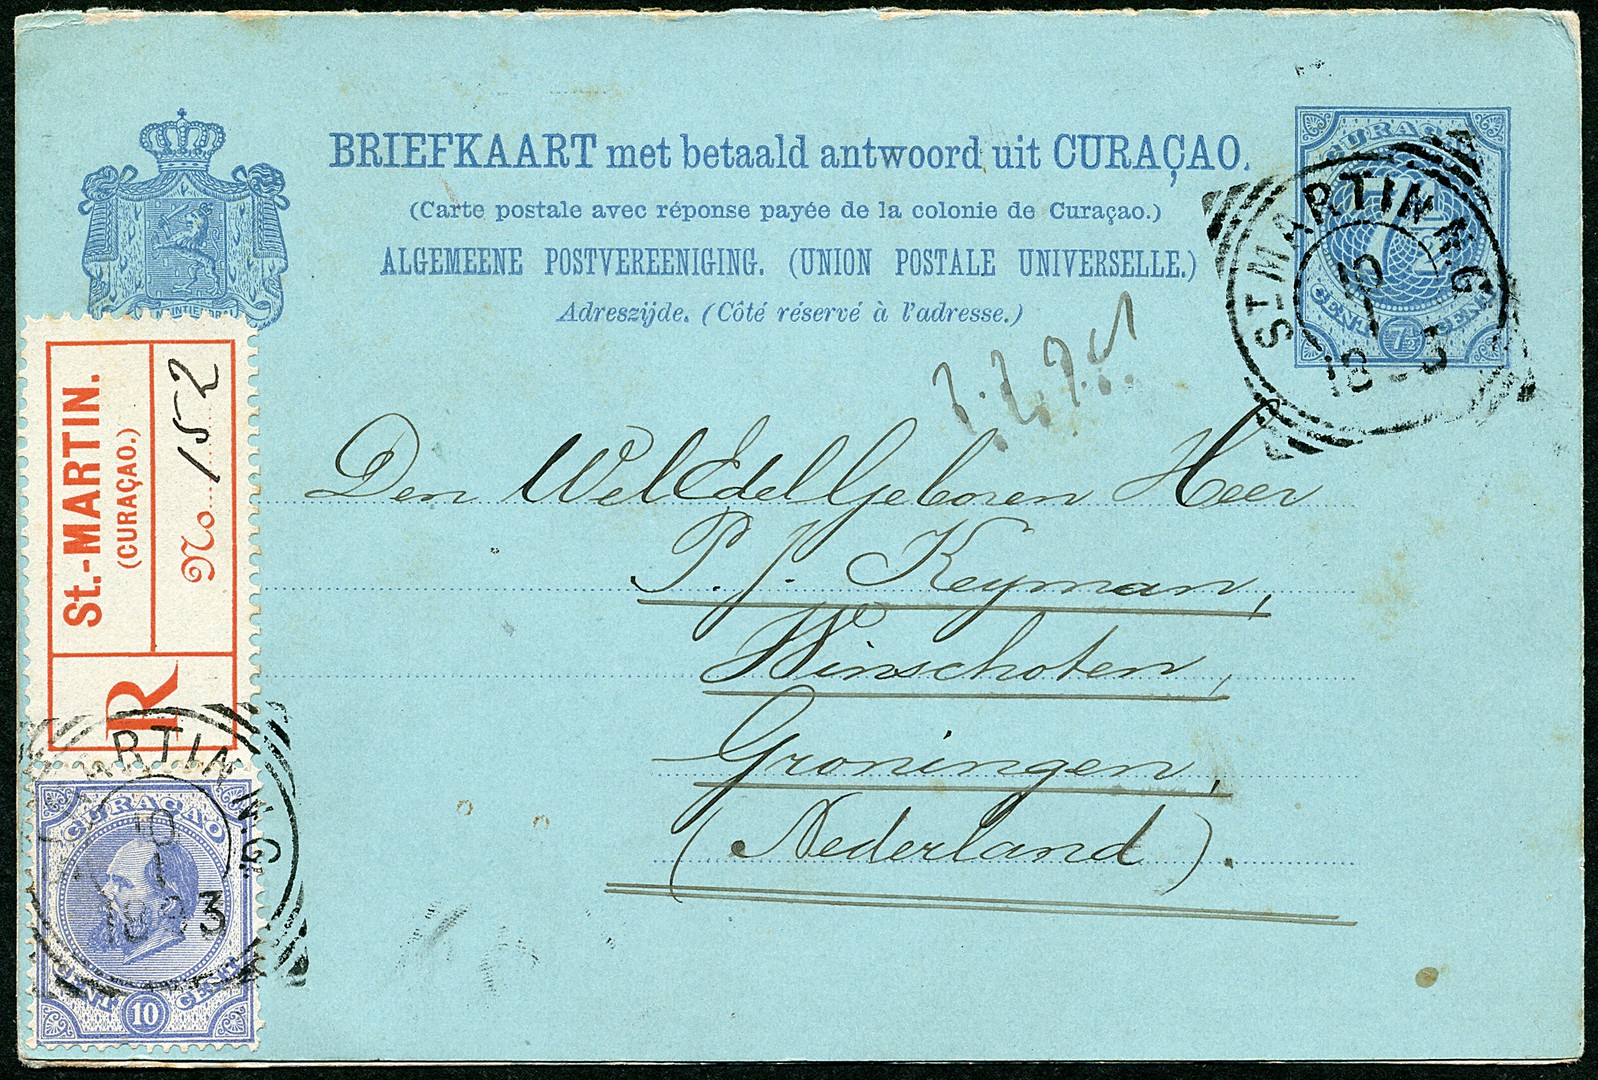 BRIEFKAART met betaald antwoord uit CURAÇAO.
(Carte postale avec réponse payée de la colonie de Curaçao.)
ALGEMEENE POSTVEREENIGING. (UNION POSTALE UNIVERSELLE.)
Adreszijde. (Côté réservé à l'adresse.)
CURAÇAO
CENT 7½ CENT
ST MARTIN N.G.
10
1
18 3
St.-MARTIN.
(CURAÇAO.)
No. 152
R
Den WelEdelGeboren Heer
P. J. Keyman,
Winschoten,
Groningen,
(Nederland).
MARTIN N.G.
10
1
1893
CURAÇAO
CENT 10 CENT